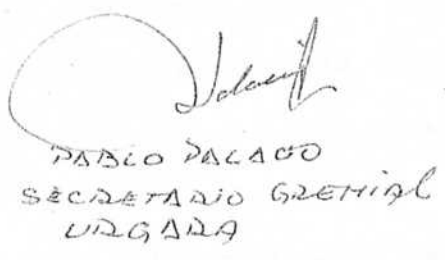 PABLO PALACIO
SECRETARIO GREMIAL
URGARA